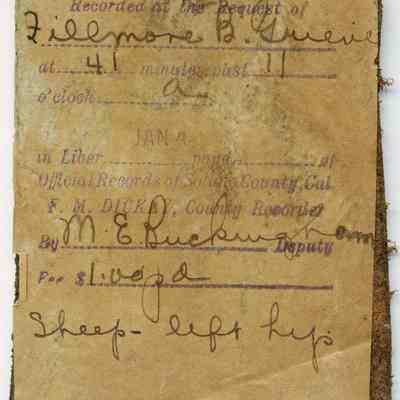 Recorded at the Request of
Fillmore B. Grieve
at 41 minutes past 11
o'clock a
JAN 2
in Liber page of
Official Records of Solano County, Cal.
F. M. DICKEY, County Recorder
By M. E. Buckingham Deputy
Fee $1.00 pd
Sheep - left hip